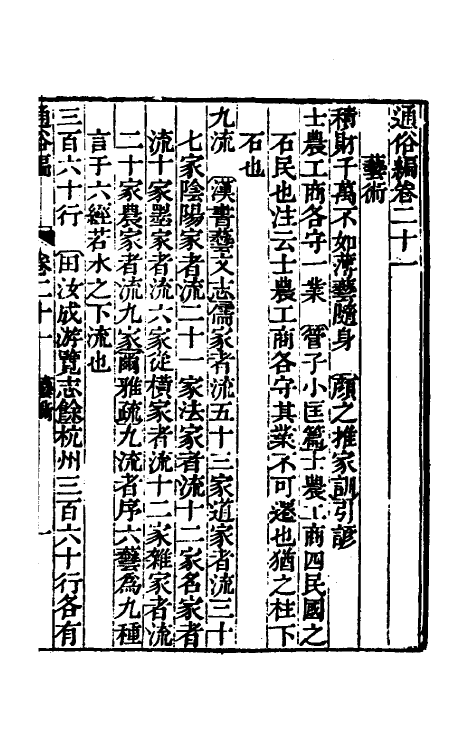 通俗編卷二十一
藝術
積財千萬不如薄藝隨身　顏之推家訓引諺
士農工商各守一業　管子小匡篇士農工商四民國之
石民也注云士農工商各守其業不可遷也猶之柱下
石也
九流　漢書藝文志儒家者流五十三家道家者流三十
七家陰陽家者流二十一家法家者流十二家名家者
流十家墨家者流六家從橫家者流十二家雜家者流
二十家農家者流九家爾雅疏九流者序六藝爲九種
言于六經若水之下流也
三百六十行　田汝成游覽志餘杭州三百六十行各有
通俗編　卷二十一　藝術　一